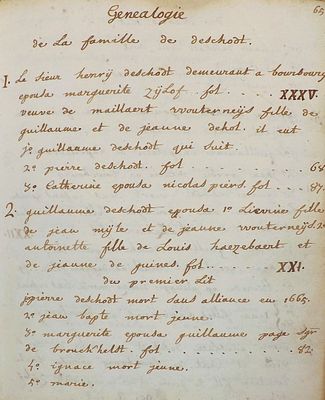 Genealogie
65
de La famille de deschodt.
1. Le sieur henrÿ deschodt demeurant a bourbourg
epousa marguerite Zÿlof. fol. .... XXXV.
veuve de maillaert wouterneÿs fille de
guillaume et de jeanne dehol. il eut
1° guillaume deschodt qui suit.
2° pierre deschodt. fol ........ 64
3° catherine epousa nicolas piers. fol .. 87.
2. guillaume deschodt epousa 1° Lievine fille
de jean mÿte et de jeanne wouterneÿs 2°
antoinette fille de Louis haezebaert et
de jeanne de guines. fol ..... XXI.
du premier Lit
1° pierre deschodt mort sans alliance en 1665.
2° jean bapte mort jeune.
3° marguerite epousa guillaume page Sgr
de brouckheldt. fol ....... 82.
4° ignace mort jeune.
5° marie.